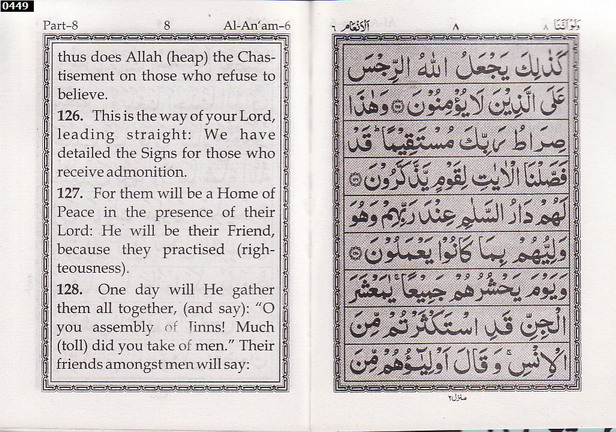 0449
Part-8 8 Al-An'am-6
thus does Allah (heap) the Chas-
tisement on those who refuse to
believe.
126. This is the way of your Lord,
leading straight: We have
detailed the Signs for those who
receive admonition.
127. For them will be a Home of
Peace in the presence of their
Lord: He will be their Friend,
because they practised (righ-
teousness).
128. One day will He gather
them all together, (and say): "O
you assembly of Jinns! Much
(toll) did you take of men." Their
friends amongst men will say:
ولواننا ٨ ٨ الانعام ٦
كَذٰلِكَ يَجْعَلُ اللّٰهُ الرِّجْسَ
عَلَى الَّذِيْنَ لَا يُؤْمِنُوْنَ ﴿۱۲۵﴾ وَهٰذَا
صِرَاطُ رَبِّكَ مُسْتَقِيْمًا ؕ قَدْ
فَصَّلْنَا الْاٰيٰتِ لِقَوْمٍ يَّذَّكَّرُوْنَ ﴿۱۲۶﴾
لَهُمْ دَارُ السَّلٰمِ عِنْدَ رَبِّهِمْ وَهُوَ
وَلِيُّهُمْ بِمَا كَانُوْا يَعْمَلُوْنَ ﴿۱۲۷﴾
وَيَوْمَ يَحْشُرُهُمْ جَمِيْعًا ۚ يٰمَعْشَرَ
الْجِنِّ قَدِ اسْتَكْثَرْتُمْ مِّنَ
الْاِنْسِ ۚ وَقَالَ اَوْلِيٰٓـؤُهُمْ مِّنَ
منزل ٢